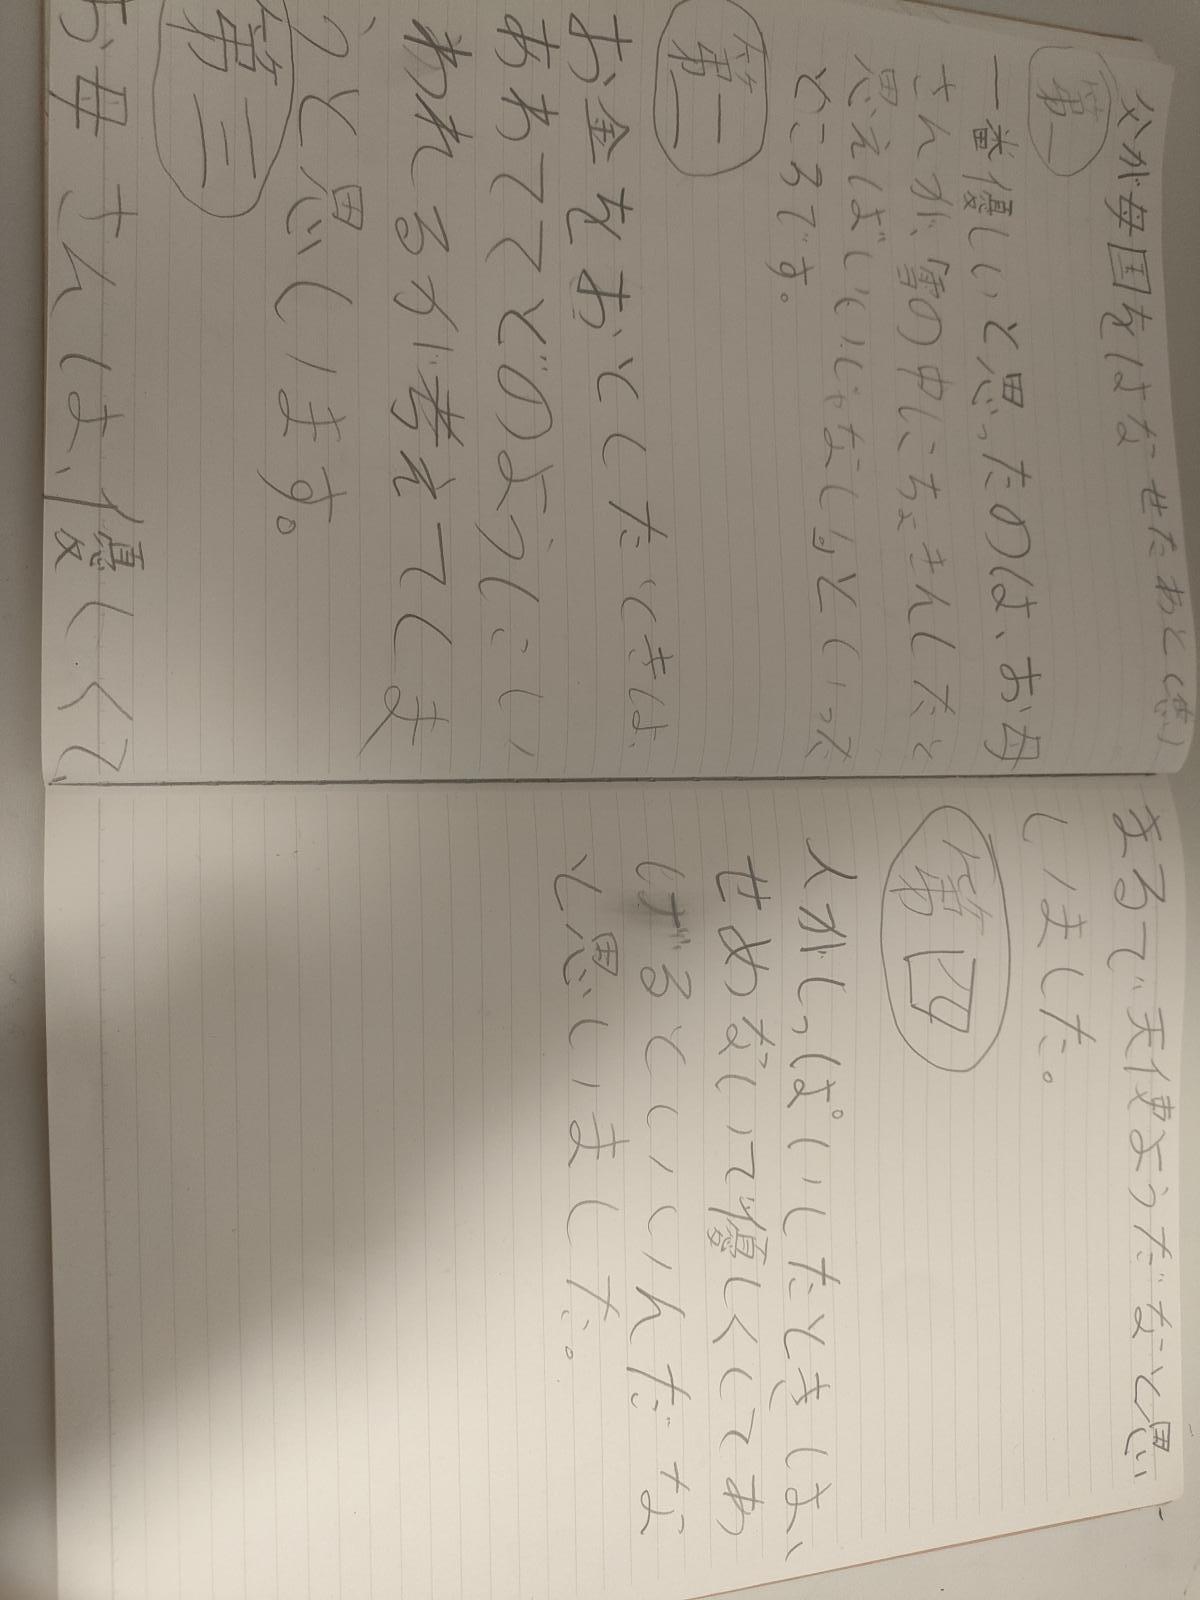 父が母国をはなせたあと思い
第一
一番優しいと思ったのは、お母
さんが、雪の中にちょきんしたと
思えばいいじゃないかといった
ところです。
第二
お金をおとしたときは、
あわててどのようにい
われるか考えてしま
うと思います。
第三
お母さんは、優しくて、
まるで天使ようだなと思
いました。
第四
人がしっぱいしたときは、
せめないで優しくしてあ
げるといいんだな
と思いました。